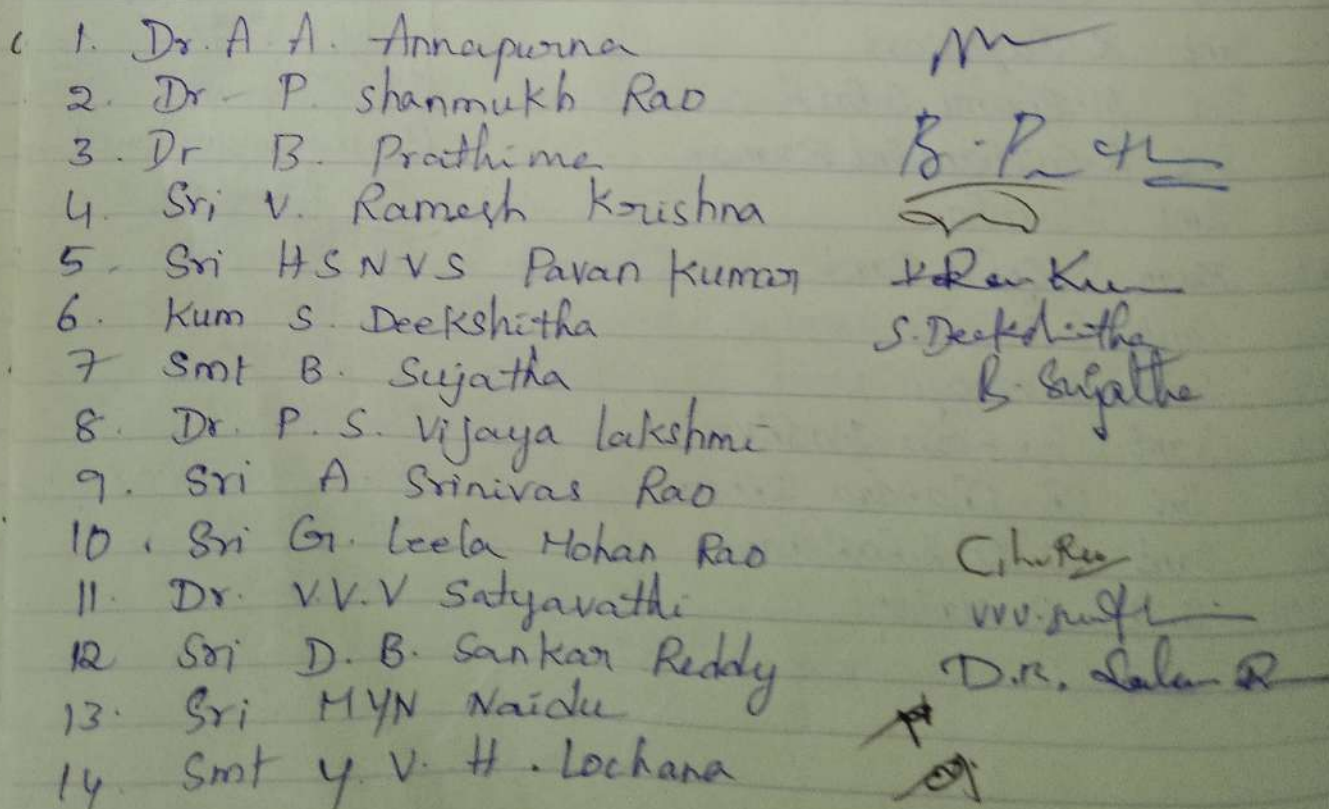 1. Dr. A. A. Annapurna
2. Dr. P. Shanmukh Rao
3. Dr B. Prathima B. P
4. Sri V. Ramesh Krishna
5. Sri HSNVS Pavan Kumar
6. Kum S. Deekshitha S. Deekshitha
7 Smt B. Sujatha B. Sujatha
8. Dr. P. S. Vijaya lakshmi
9. Sri A Srinivas Rao
10. Sri G. Leela Mohan Rao
11. Dr. V.V.V Satyavathi
12 Sri D. B. Sankar Reddy
13. Sri MYN Naidu
14. Smt Y. V. H. Lochana